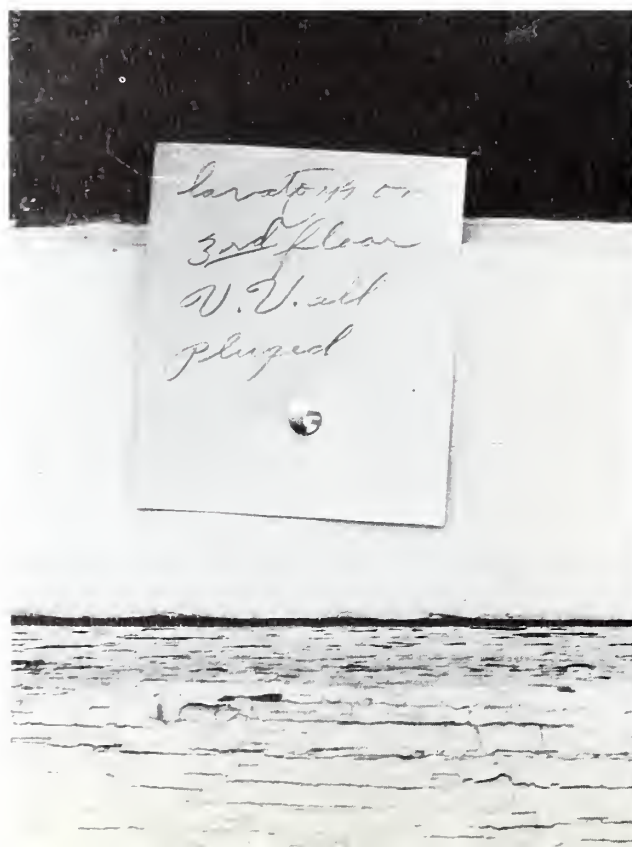 lavatory on
3rd floor
V.V. all
pluged